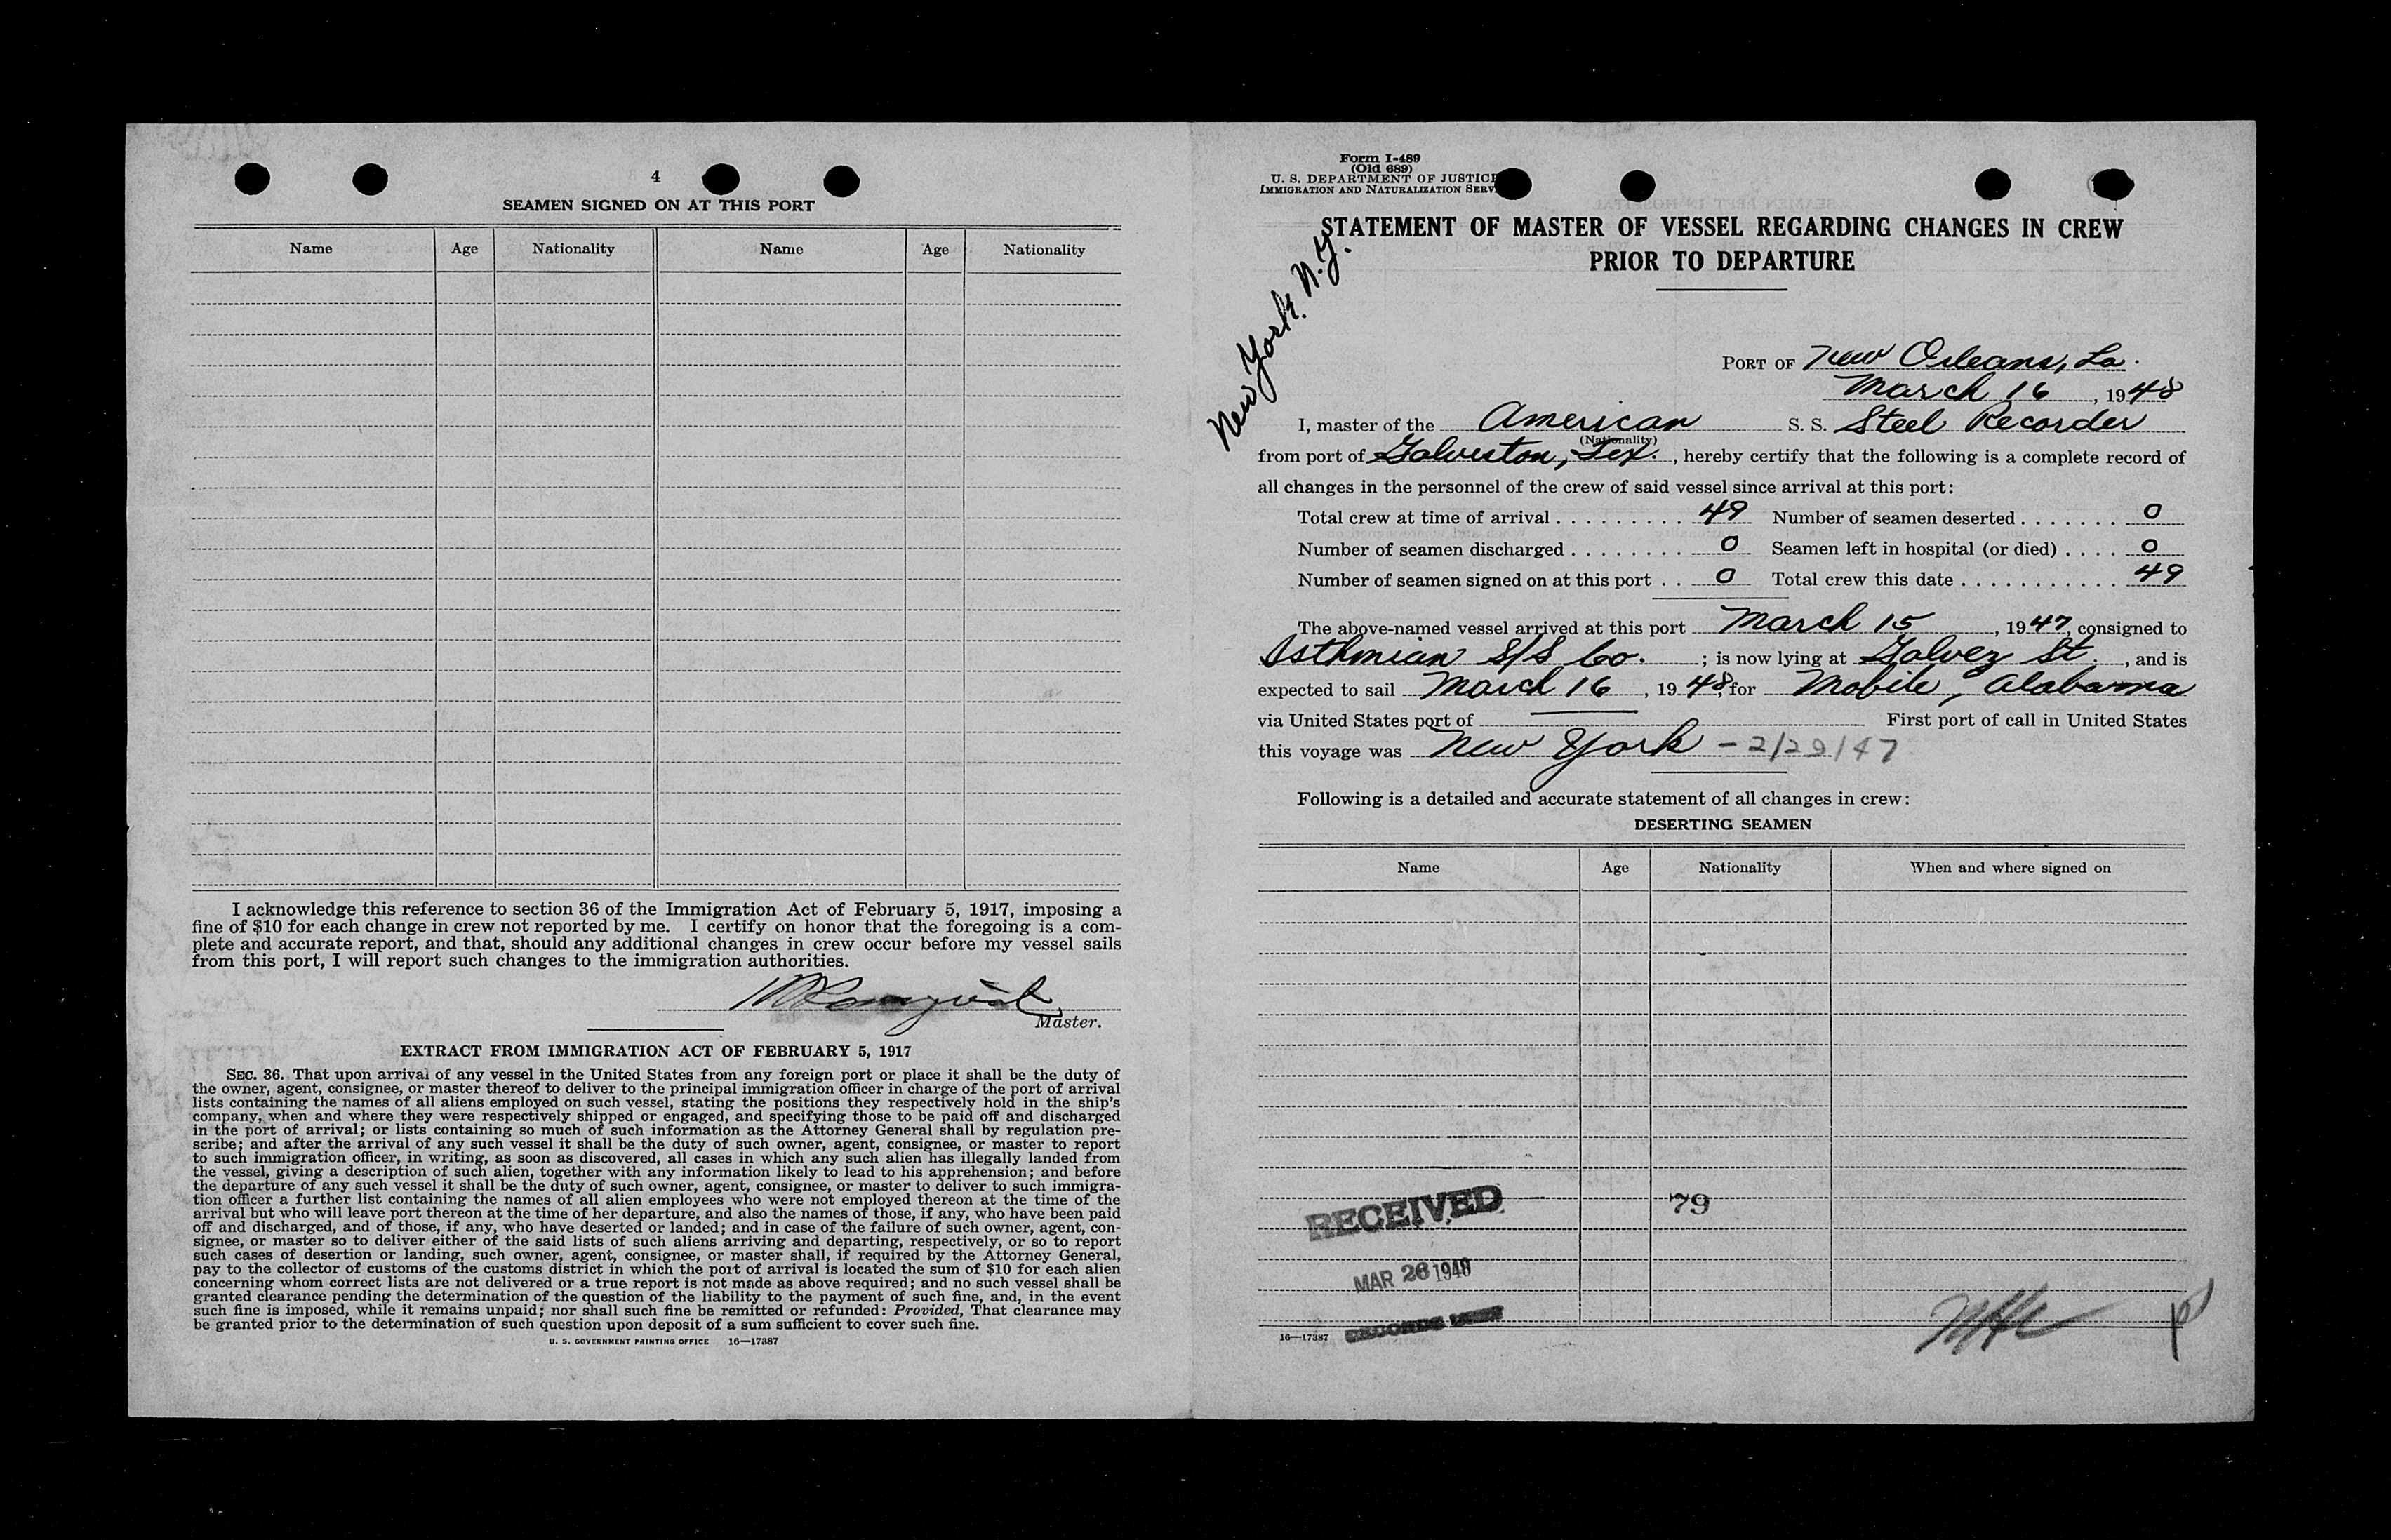 4
SEAMEN SIGNED ON AT THIS PORT
Name Age Nationality Name Age Nationality
I acknowledge this reference to section 36 of the Immigration Act of February 5, 1917, imposing a
fine of $10 for each change in crew not reported by me. I certify on honor that the foregoing is a com-
plete and accurate report, and that, should any additional changes in crew occur before my vessel sails
from this port, I will report such changes to the immigration authorities.
Master.
EXTRACT FROM IMMIGRATION ACT OF FEBRUARY 5, 1917
SEC. 36. That upon arrival of any vessel in the United States from any foreign port or place it shall be the duty of
the owner, agent, consignee, or master thereof to deliver to the principal immigration officer in charge of the port of arrival
lists containing the names of all aliens employed on such vessel, stating the positions they respectively hold in the ship's
company, when and where they were respectively shipped or engaged, and specifying those to be paid off and discharged
in the port of arrival; or lists containing so much of such information as the Attorney General shall by regulation pre-
scribe; and after the arrival of any such vessel it shall be the duty of such owner, agent, consignee, or master to report
to such immigration officer, in writing, as soon as discovered, all cases in which any such alien has illegally landed from
the vessel, giving a description of such alien, together with any information likely to lead to his apprehension; and before
the departure of any such vessel it shall be the duty of such owner, agent, consignee, or master to deliver to such immigra-
tion officer a further list containing the names of all alien employees who were not employed thereon at the time of the
arrival but who will leave port thereon at the time of her departure, and also the names of those, if any, who have been paid
off and discharged, and of those, if any, who have deserted or landed; and in case of the failure of such owner, agent, con-
signee, or master so to deliver either of the said lists of such aliens arriving and departing, respectively, or so to report
such cases of desertion or landing, such owner, agent, consignee, or master shall, if required by the Attorney General,
pay to the collector of customs of the customs district in which the port of arrival is located the sum of $10 for each alien
concerning whom correct lists are not delivered or a true report is not made as above required; and no such vessel shall be
granted clearance pending the determination of the question of the liability to the payment of such fine, and, in the event
such fine is imposed, while it remains unpaid; nor shall such fine be remitted or refunded: Provided, That clearance may
be granted prior to the determination of such question upon deposit of a sum sufficient to cover such fine.
U. S. GOVERNMENT PRINTING OFFICE 16—17387
Form I-489
(Old 689)
U. S. DEPARTMENT OF JUSTICE
IMMIGRATION AND NATURALIZATION SERV
STATEMENT OF MASTER OF VESSEL REGARDING CHANGES IN CREW
PRIOR TO DEPARTURE
New York. N.Y.
PORT OF New Orleans, La.
March 16, 1948
I, master of the American S. S. Steel Recorder
(Nationality)
from port of Galveston, Tex., hereby certify that the following is a complete record of
all changes in the personnel of the crew of said vessel since arrival at this port:
Total crew at time of arrival . . . . . . . . . 49 Number of seamen deserted . . . . . . . 0
Number of seamen discharged . . . . . . . . 0 Seamen left in hospital (or died) . . . . 0
Number of seamen signed on at this port . . 0 Total crew this date . . . . . . . . . . . 49
The above-named vessel arrived at this port March 15, 1947, consigned to
Isthmian S/S Co. ; is now lying at Galvez St., and is
expected to sail March 16, 1948, for Mobile, Alabama
via United States port of — First port of call in United States
this voyage was New York - 2/29/47
Following is a detailed and accurate statement of all changes in crew:
DESERTING SEAMEN
Name Age Nationality When and where signed on
RECEIVED
79
MAR 26 1948
16—17387